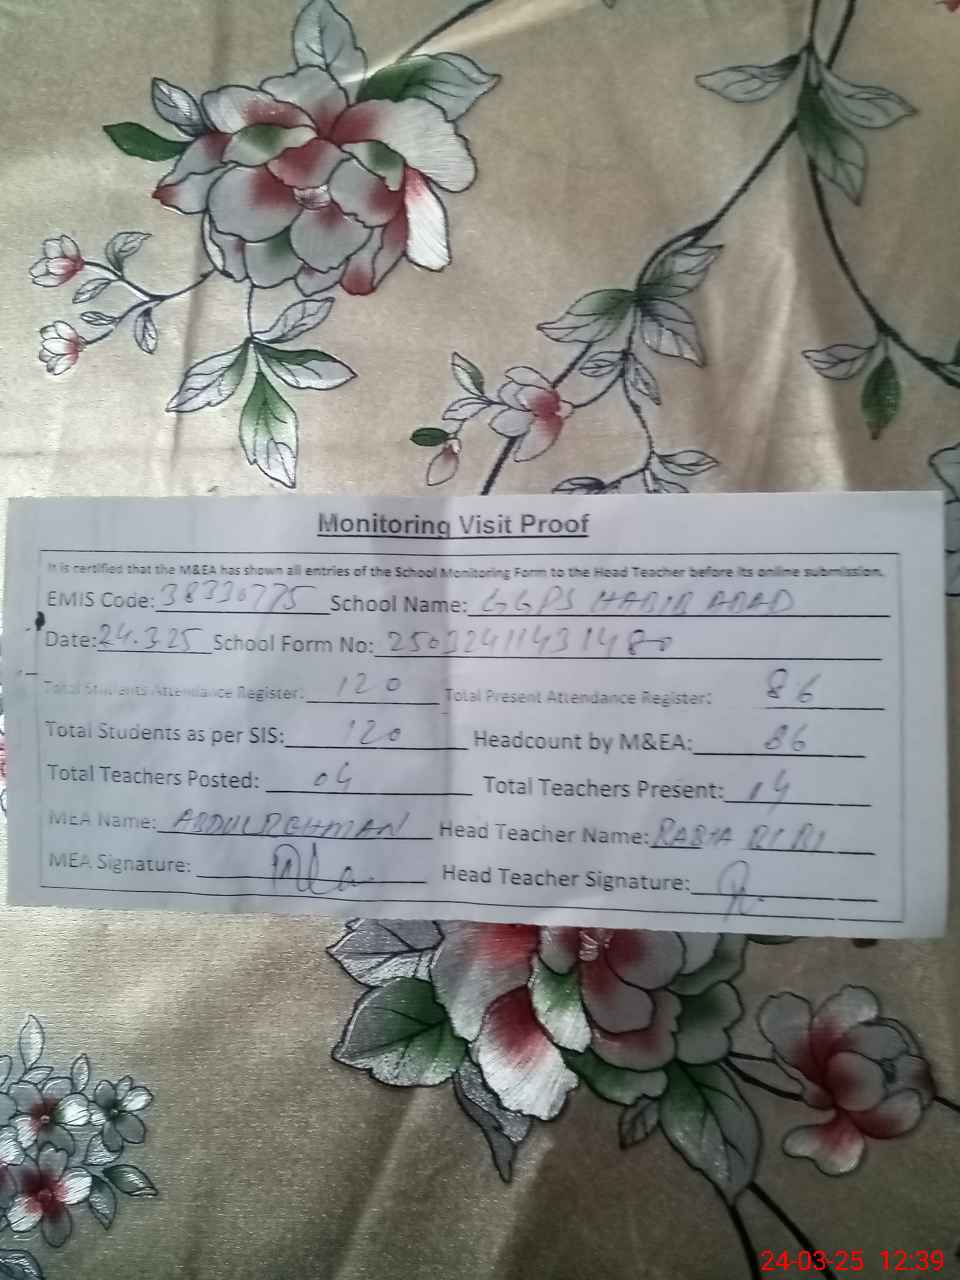 Monitoring Visit Proof
It is certified that the M&EA has shown all entries of the School Monitoring Form to the Head Teacher before its online submission.
EMIS Code: 38330775 School Name: GGPS HABIB ABAD
Date: 24.3.25 School Form No: 25032411431480
Total Students Attendance Register: 120 Total Present Attendance Register: 86
Total Students as per SIS: 120 Headcount by M&EA: 86
Total Teachers Posted: 04 Total Teachers Present:
MEA Name: ABDUL REHMAN Head Teacher Name: RABIA BIBI
MEA Signature: Head Teacher Signature:
24-03-25 12:39